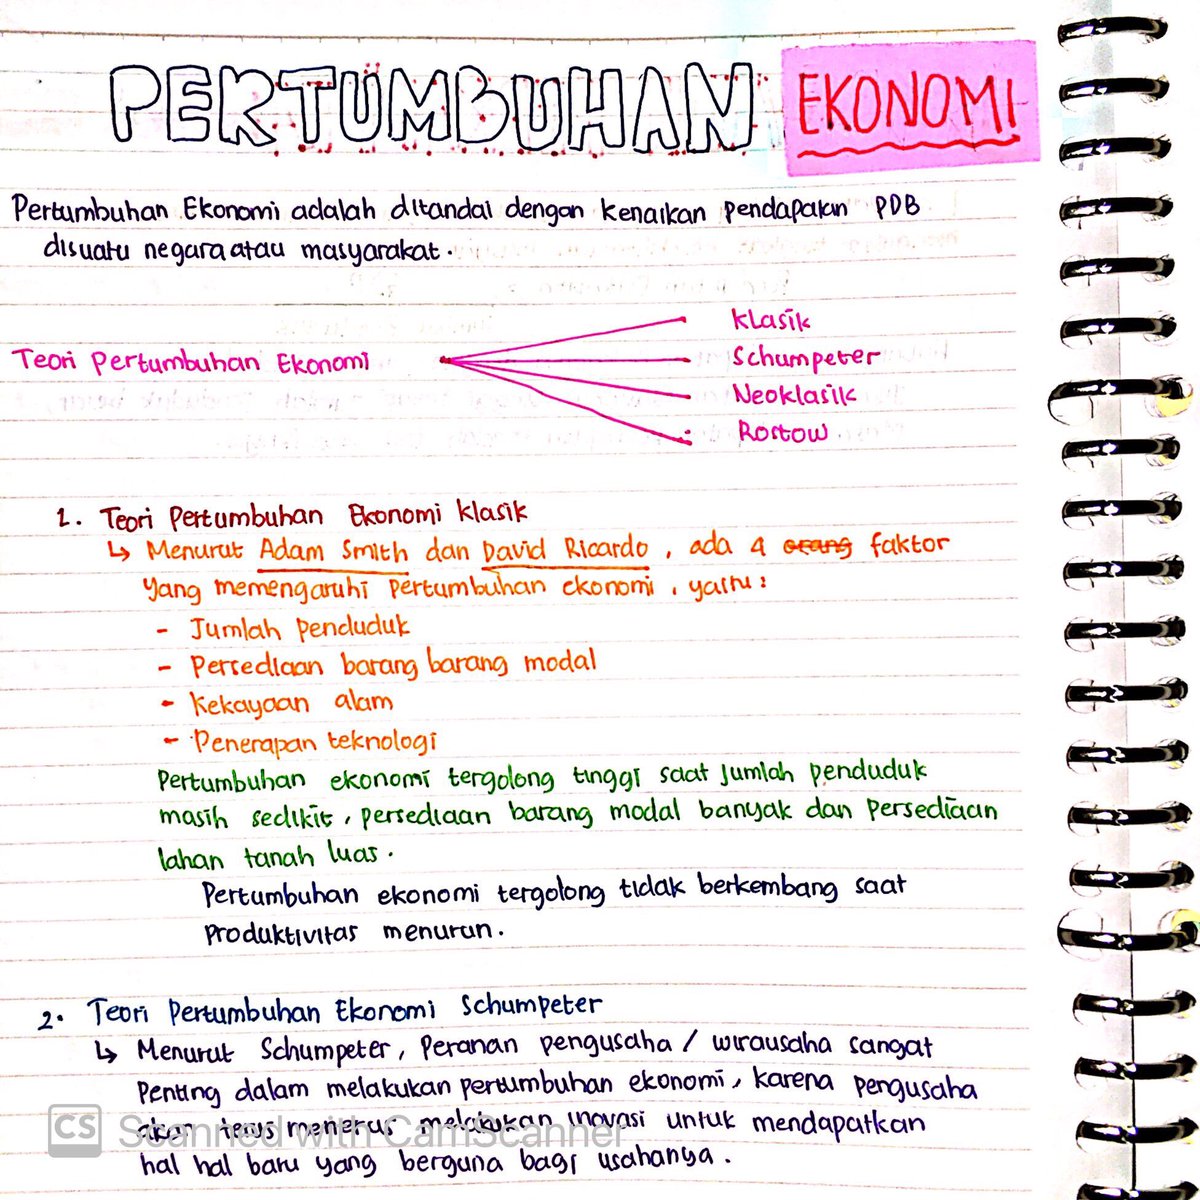 PERTUMBUHAN EKONOMI
Pertumbuhan Ekonomi adalah ditandai dengan kenaikan pendapatan PDB
disuatu negara atau masyarakat.
Teori Pertumbuhan Ekonomi
Klasik
Schumpeter
Neoklasik
Rostow
1. Teori Pertumbuhan Ekonomi Klasik
↳ Menurut Adam Smith dan David Ricardo, ada 4 orang faktor
yang memengaruhi pertumbuhan ekonomi, yaitu:
- Jumlah penduduk
- Persediaan barang barang modal
- Kekayaan alam
- Penerapan teknologi
Pertumbuhan ekonomi tergolong tinggi saat jumlah penduduk
masih sedikit, persediaan barang modal banyak dan persediaan
lahan tanah luas.
Pertumbuhan ekonomi tergolong tidak berkembang saat
produktivitas menurun.
2. Teori Pertumbuhan Ekonomi Schumpeter
↳ Menurut Schumpeter, Peranan pengusaha / wirausaha sangat
penting dalam melakukan pertumbuhan ekonomi, karena pengusaha
akan terus menerus melakukan inovasi untuk mendapatkan
hal hal baru yang berguna bagi usahanya.
CS Scanned with CamScanner